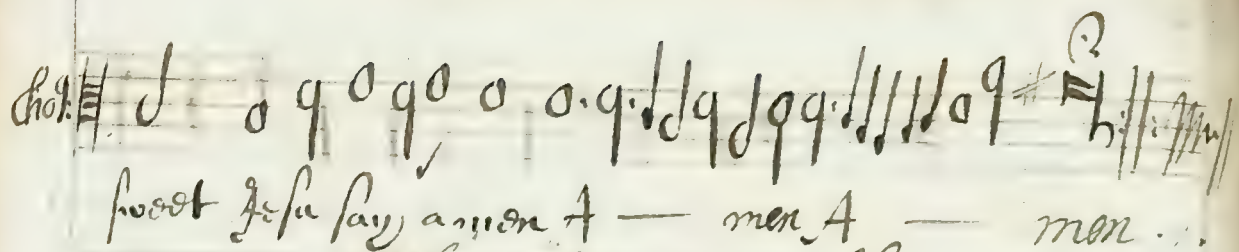 cho:
sweet Jesu say, amen A — men, A — men . . .